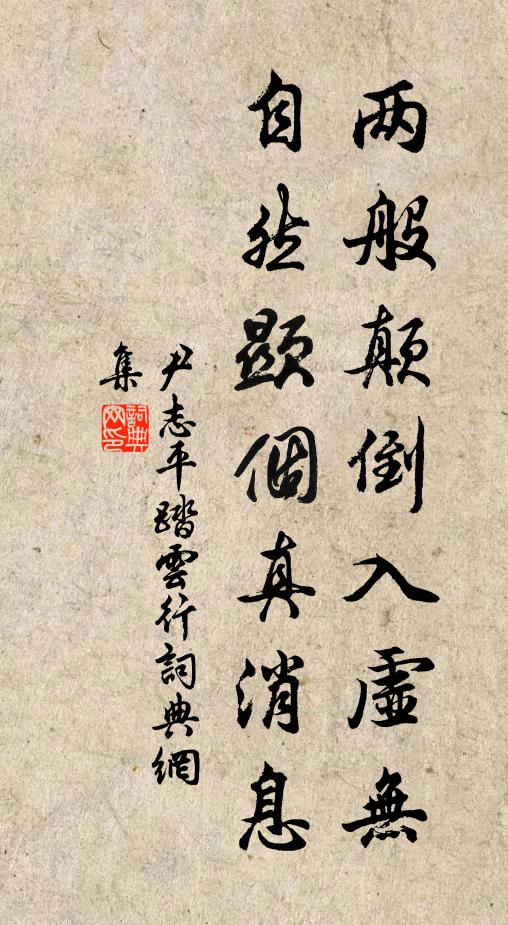 两般颠倒入虛無
自然顯個真消息
尹志平踏雲行詞典網
集
詞典
网印